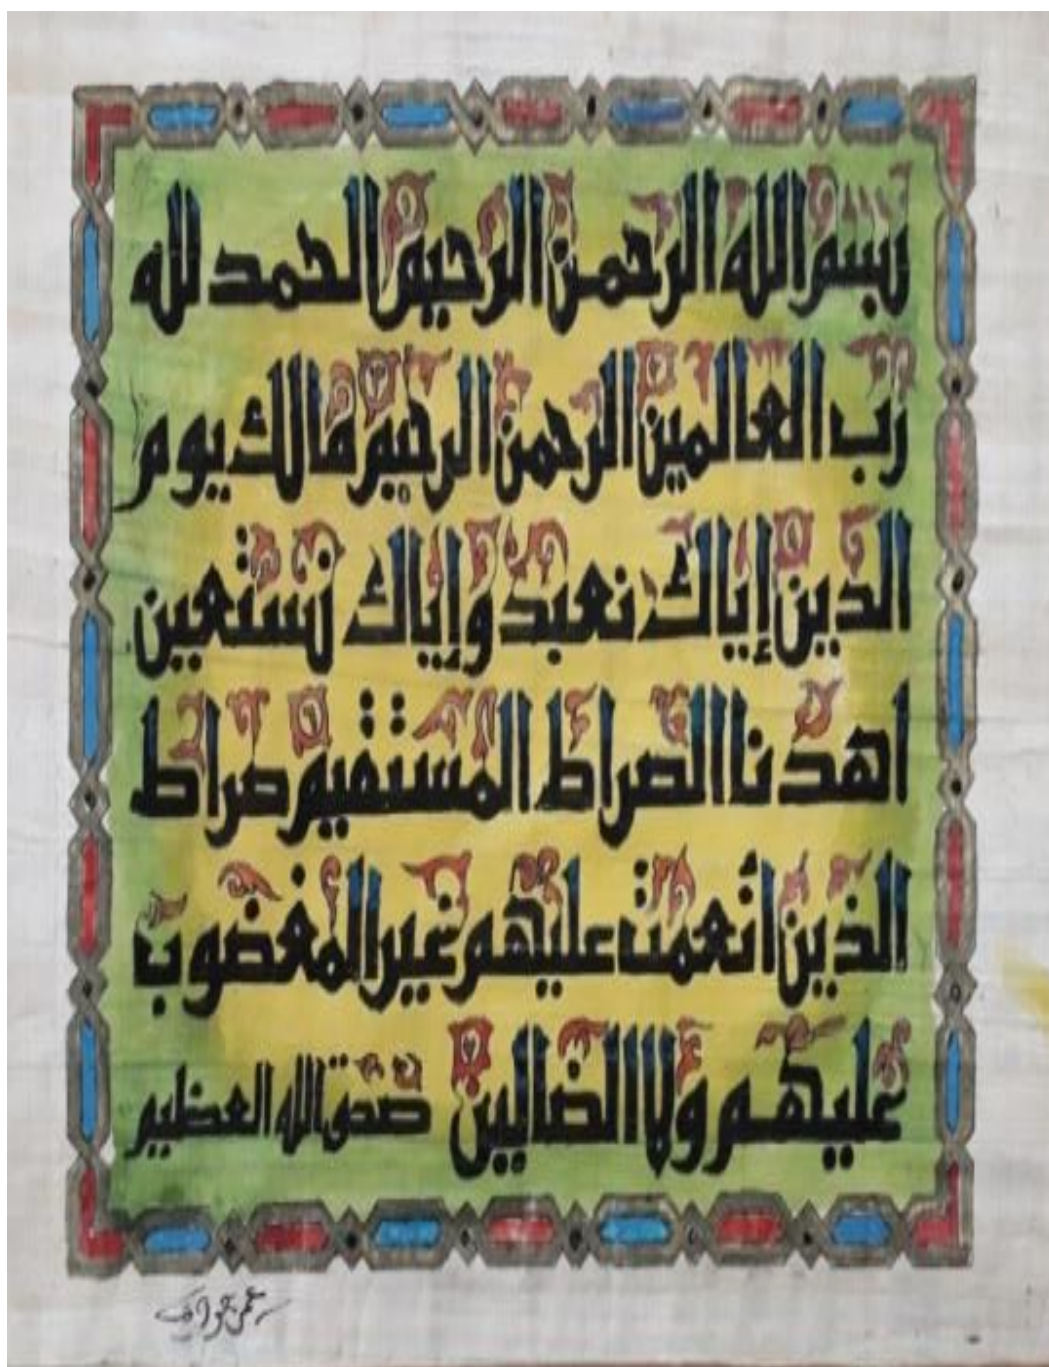 بسم الله الرحمن الرحيم الحمد لله
رب العالمين الرحمن الرحيم مالك يوم
الدين إياك نعبد وإياك نستعين
اهدنا الصراط المستقيم صراط
الذين أنعمت عليهم غير المغضوب
عليهم ولا الضالين صدق الله العظيم